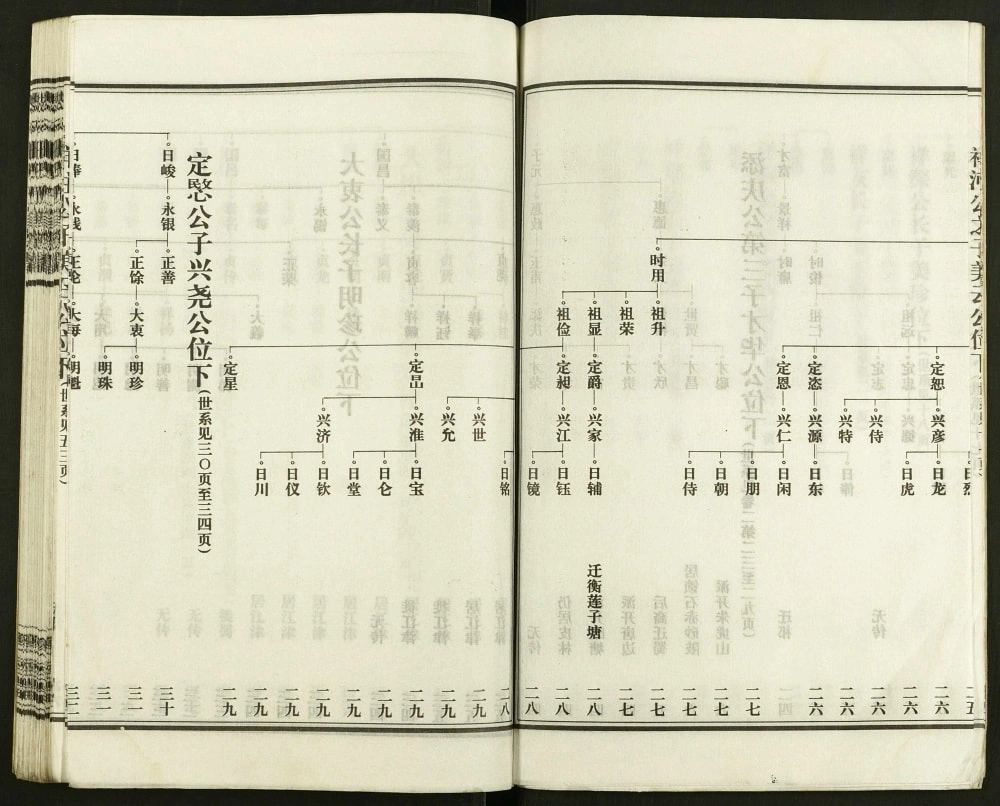 时用
祖升
祖荣
祖显
祖俭
定恕
定恣
定恩
定爵
定昶
兴彦
兴侍
兴特
兴源
兴仁
兴家
兴江
日烈
日龙
日虎
日东
日闲
日朋
日朝
日侍
日辅
日钰
日镜
日铭
迁衡莲子塘
二五
二六
二六
二六
二六
二六
二七
二七
二七
二七
二八
二八
二八
二八
定昷
定星
兴世
兴允
兴淮
兴济
日宝
日仑
日堂
日钦
日仪
日川
二九
二九
二九
二九
二九
二九
二九
二九
二九
定愍公子兴尧公位下(世系见三〇页至三四页)
日峻
永银
正善
正馀
大衷
明珍
明珠
三十
三十
三一
三二